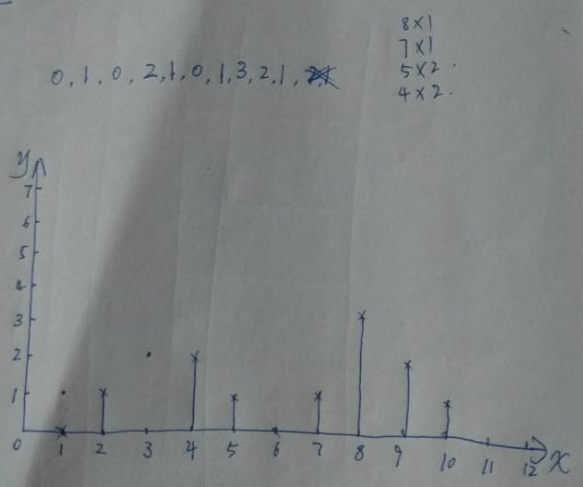 8×1
7×1
0, 1, 0, 2, 1, 0, 1, 3, 2, 1,
5×2
4×2
y
7
6
5
4
3
2
1
0 1 2 3 4 5 6 7 8 9 10 11 12 x